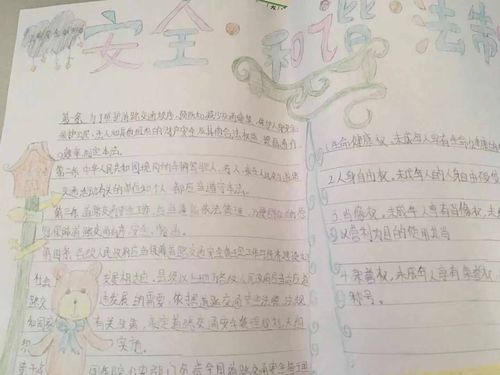 安全·和谐·法制
第一条、为了维护道路交通秩序,预防和减少交通事故,保护人身安全,
保护公民、法人和其他组织的财产安全及其他合法权益,提高通行
效率,制定本法。
第二条 中华人民共和国境内的车辆驾驶人、行人、乘车人以及与道路
交通活动有关的单位和个人,都应当遵守本法。
第三条 道路交通安全工作,应当遵循依法管理、方便群众的原
则,保障道路交通有序、安全、畅通。
第四条 各级人民政府应当保障道路交通安全管理工作与经济建设和
社会发展相适应。县级以上地方各级人民政府应当适应
道路交通发展的需要,依据道路交通安全法律、法规
和国家有关政策,制定道路交通安全管理规划,
组织实施。
1.生命健康权,未成年人享有生命
2.人身自由权,未成年人的人身自由
3.肖像权,未成年人享有肖像权,未
以营利为目的使用其肖
4.荣誉权,未成年人享有荣誉权
称号。